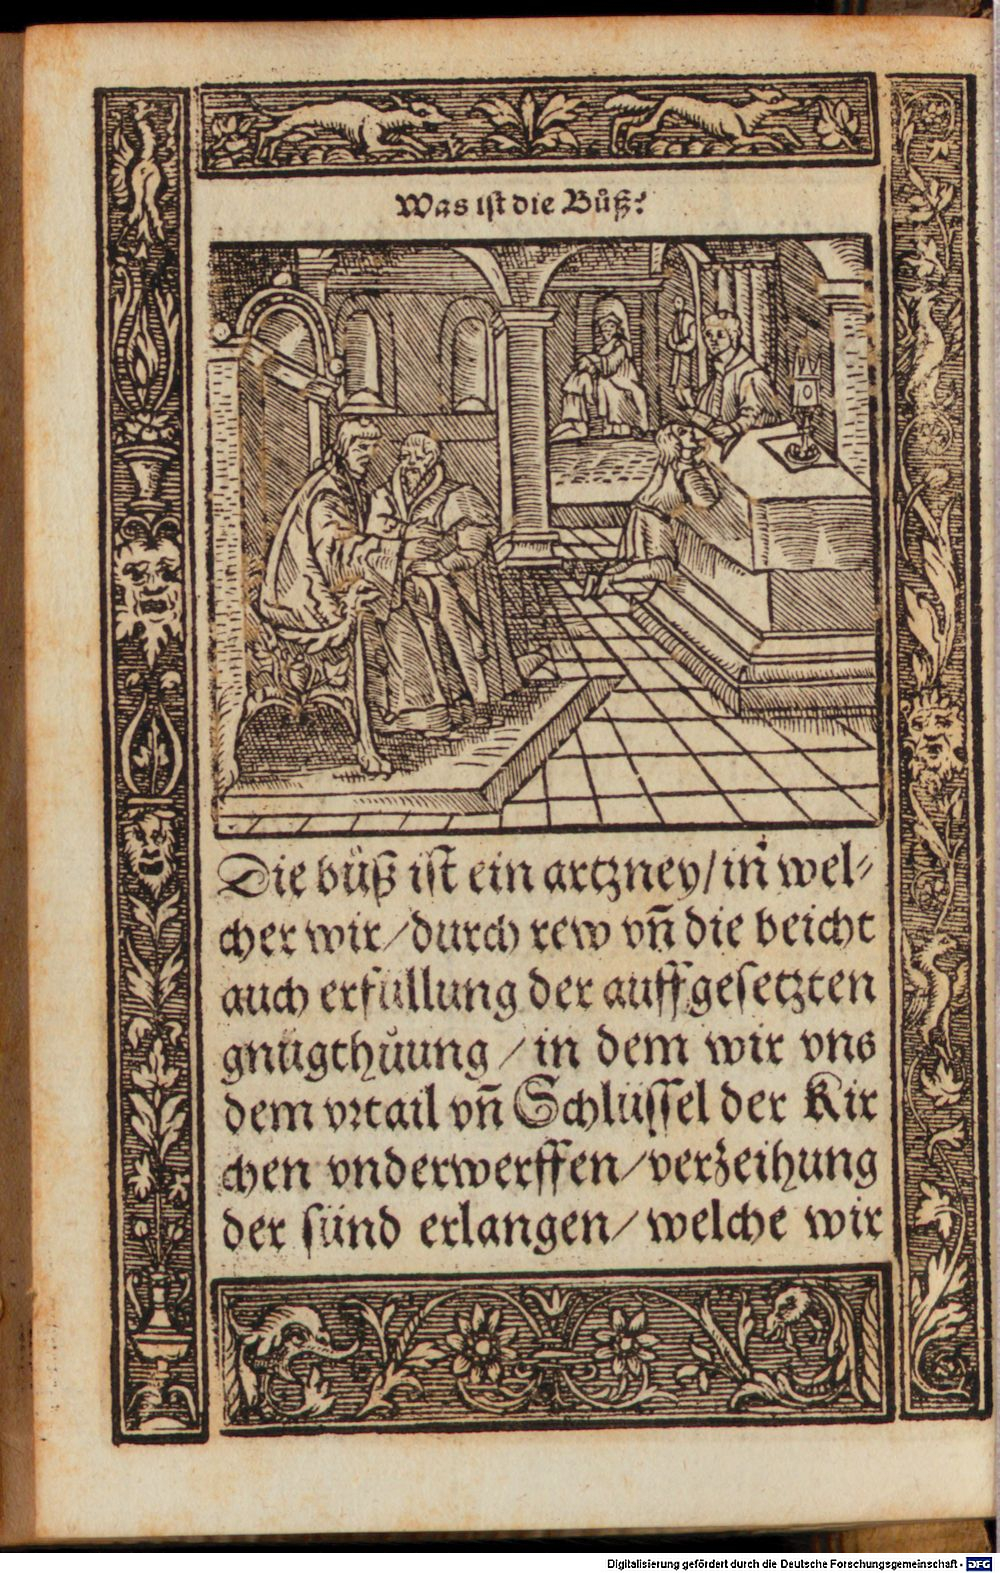 Was ist die Bůß?
Die büß ist ein artzney/ in wel⸗
cher wir/ durch rew vn̄ die beicht
auch erfüllung der auffgesetzten
gnügthůung/ in dem wir vns
dem vrtail vn̄ Schlüssel der Kir
chen vnderwerffen/ verzeihung
der sünd erlangen/ welche wir
Digitalisierung gefördert durch die Deutsche Forschungsgemeinschaft - DFG